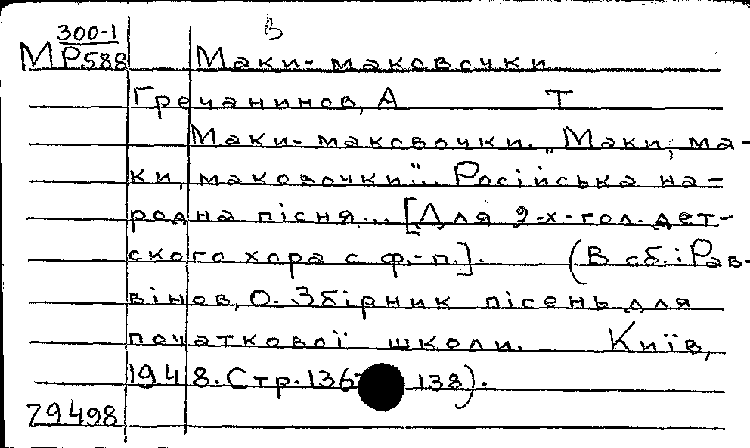 300-1 В
МР588 Маки-маковочки
Гречанинов, А Т
Маки-маковочки. „Маки, ма-
ки, маковочки"... Російська на-
родна пісня... [Для 2-х-гол. дет-
ского хора с ф.-п.]. (В сб.: Рав-
вінов, О. Збірник пісень для
початкової школи. Київ,
1948. Стр. 136- 138).
79.498